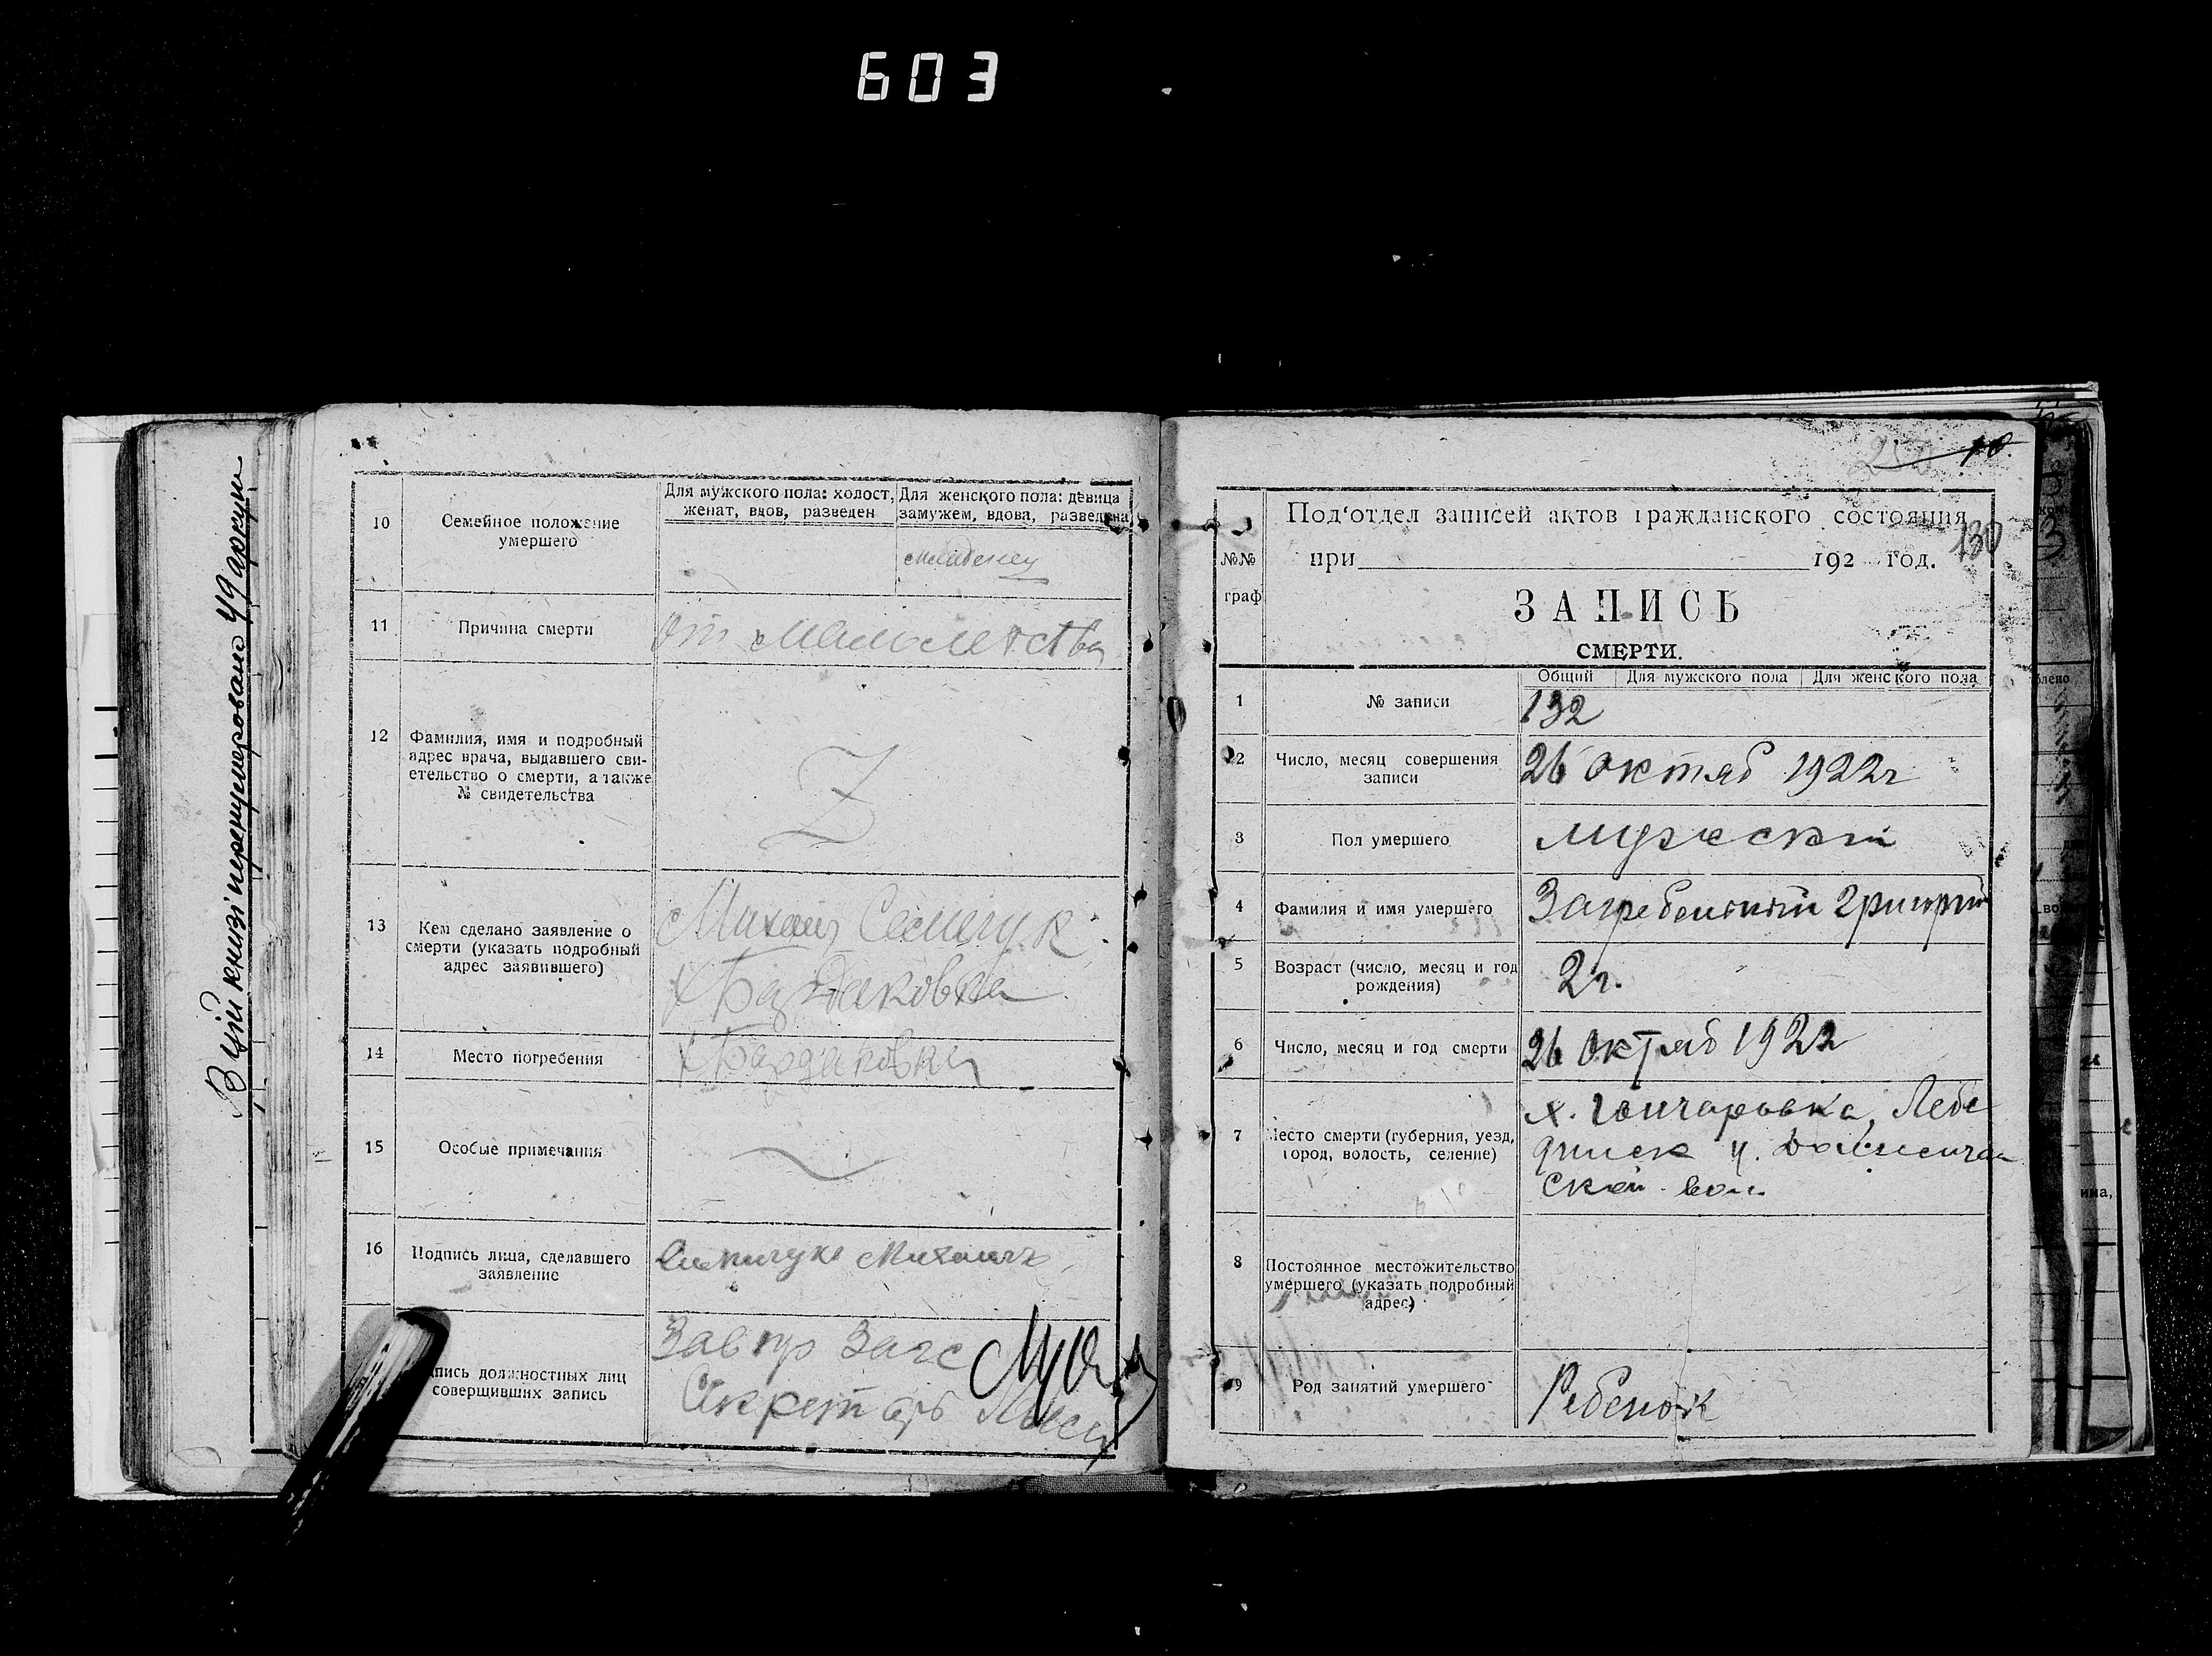 603
В цій книзі перенумеровано 49 аркуш
10
Семейное положение
умершего
Для мужского пола: холост,
женат, вдов, разведен
Для женского пола: девица
замужем, вдова, разведена
младенец
11
Причина смерти
От малолетства
12
Фамилия, имя и подробный
адрес врача, выдавшего сви-
етельство о смерти, а также
№ свидетельства
Z
13
Кем сделано заявление о
смерти (указать подробный
адрес заявившего)
Михаил
х Бардаковка
14
Место погребения
х Бардаковка
15
Особые примечания
16
Подпись лица, сделавшего
заявление
Михаилъ
пись должностных лиц
совершивших запись
Зав пр Загс
Секретарь
10.
130
№№
граф
Под‘отдел записей актов гражданского состояния
при 192 год.
ЗАПИСЬ
СМЕРТИ.
Общий Для мужского пола Для женского пола
1
№ записи
132
2
Число, месяц совершения
записи
26 октяб 1922г
3
Пол умершего
мужский
4
Фамилия и имя умершего
Загребельний Григорий
5
Возраст (число, месяц и год
рождения)
2г.
6
Число, месяц и год смерти
26 октяб 1922
7
Место смерти (губерния, уезд,
город, волость, селение)
х. Гончаровка, Лебе
динск у.
ской вол.
8
Постоянное местожительство
умершего (указать подробный
адрес)
9
Род занятий умершего
Ребенок